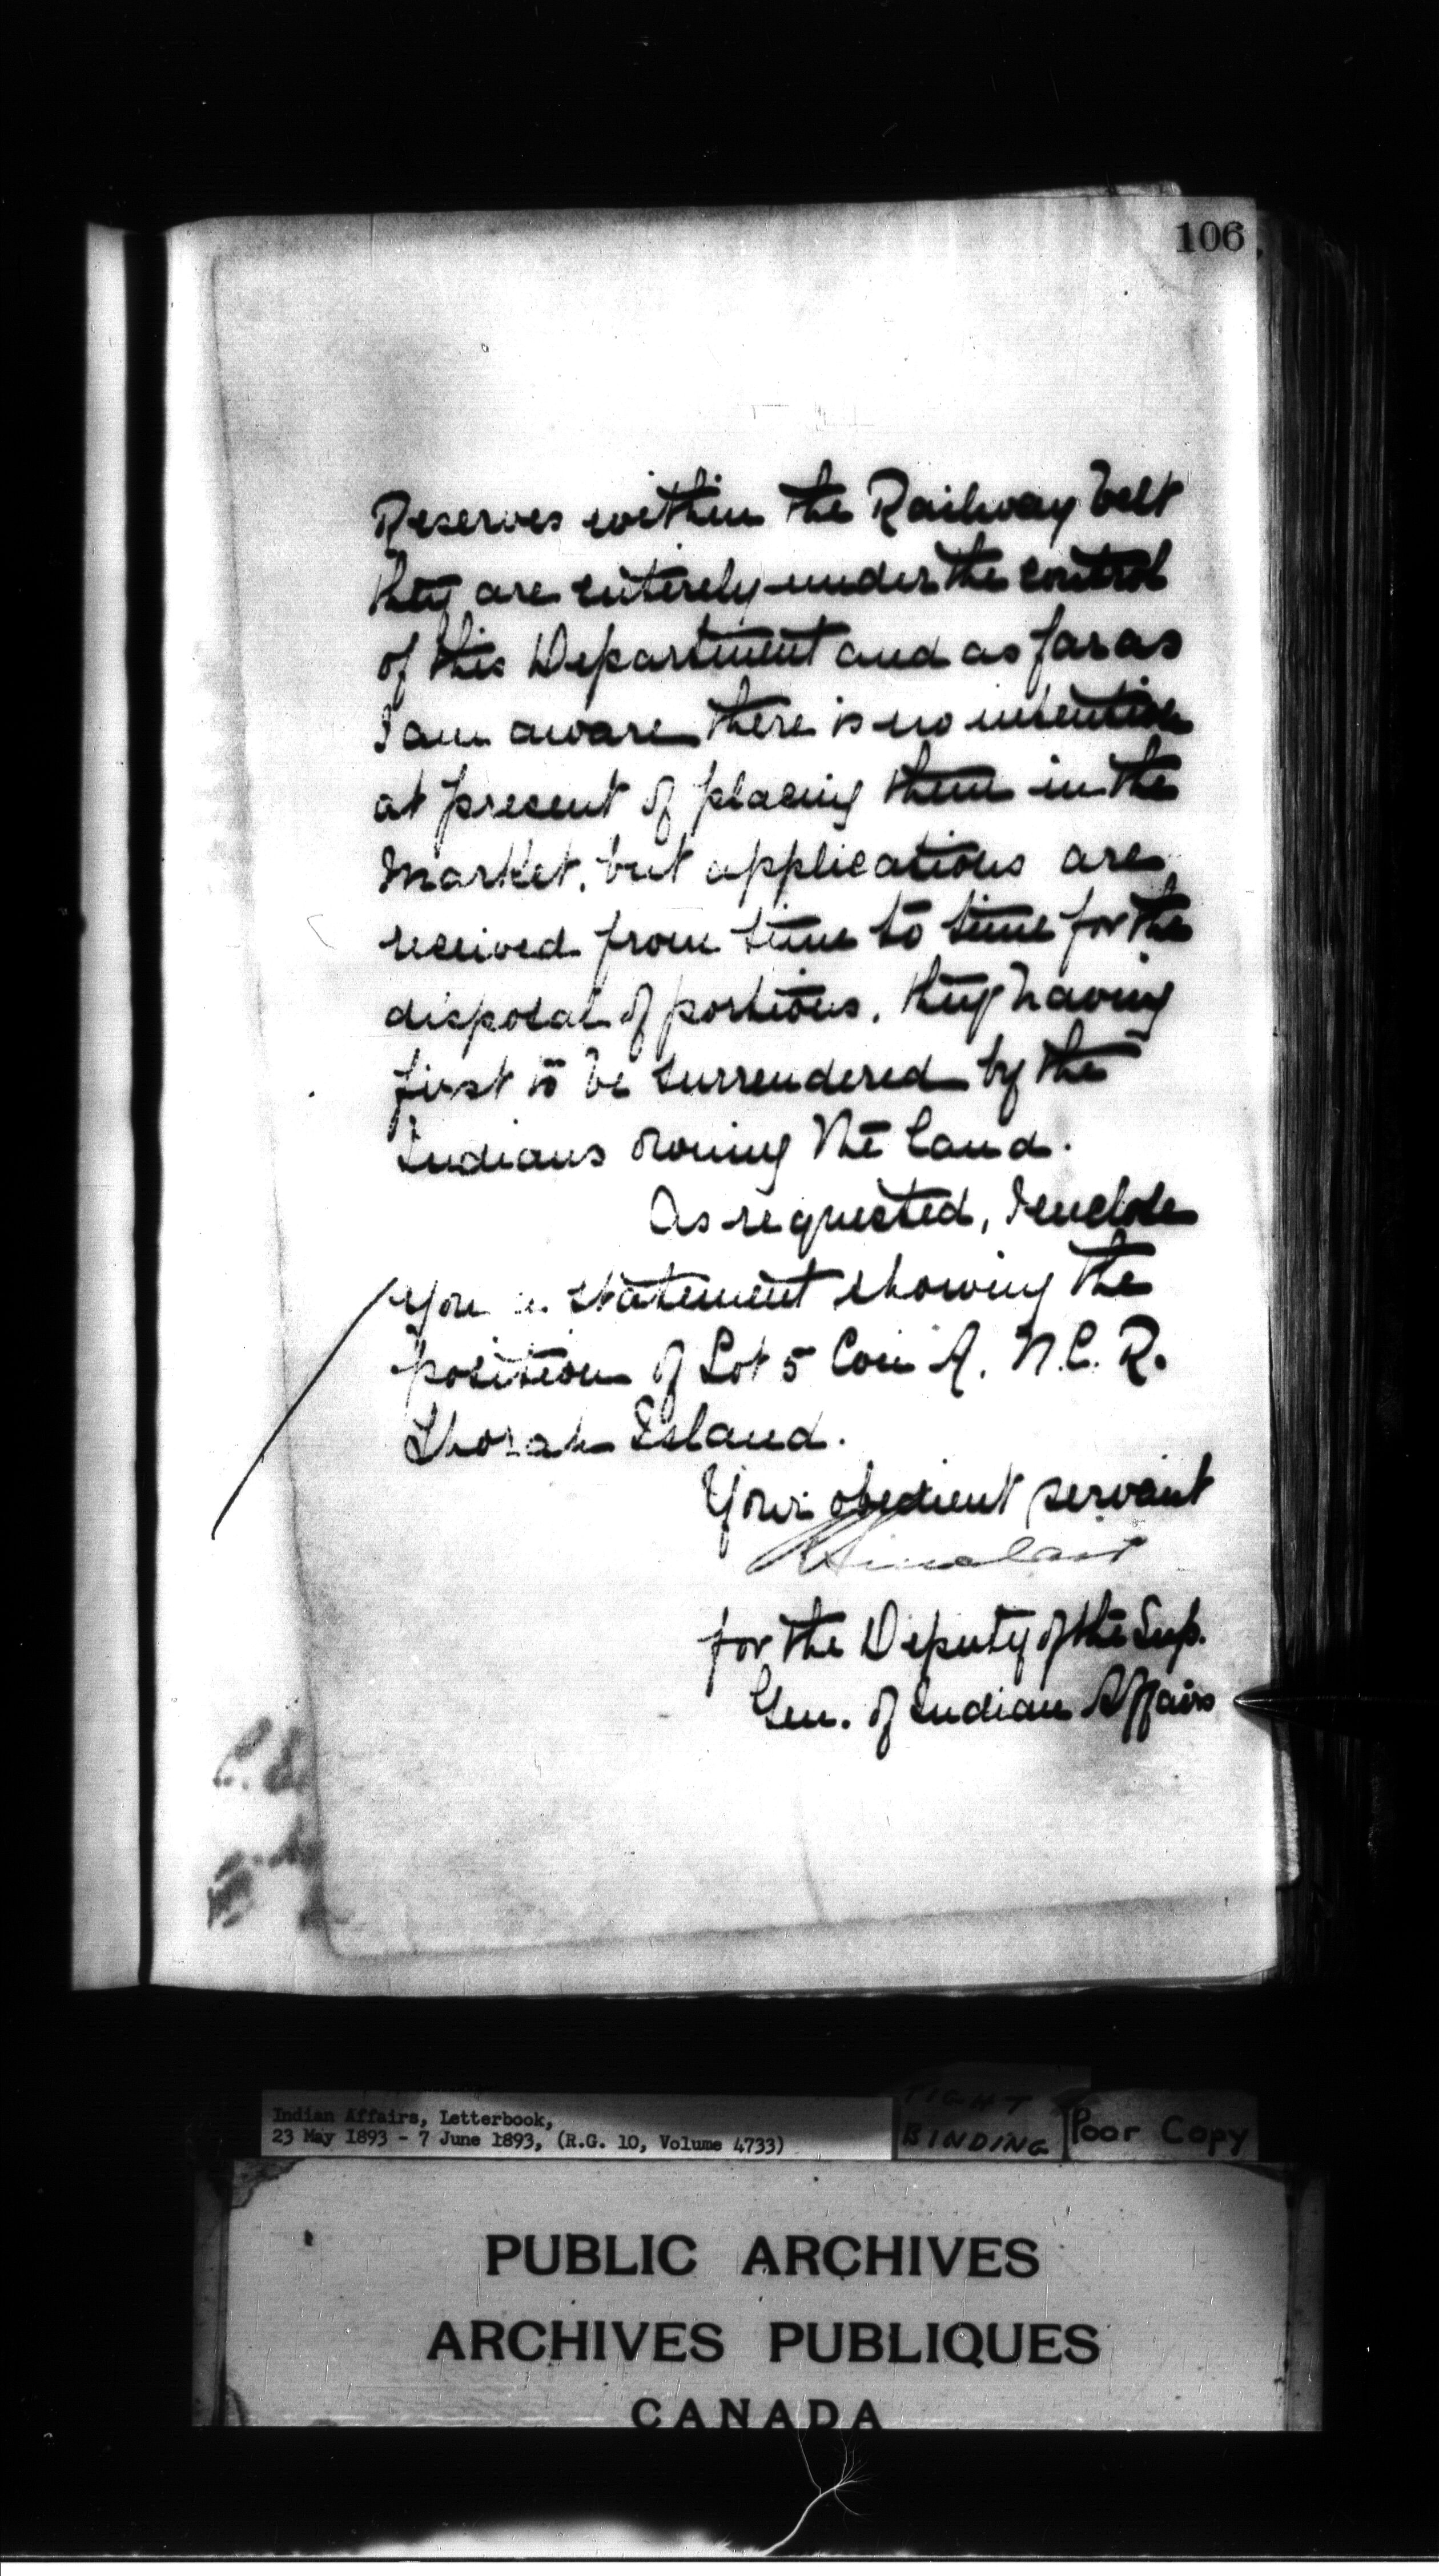 106
Reserves within the Railway belt
they are entirely under the control
of this Department and as far as
I am aware there is no intention
at present of placing them in the
market, but applications are
received from time to time for the
disposal of portions, they having
first to be surrendered by the
Indians owning the land.
As requested, I enclose
you a statement showing the
position of Lot 5 Con A. N.C.R.
Thorah Island.
Your obedient servant
R Sinclair
for the Deputy of the Sup.
Gen. of Indian Affairs
Indian Affairs, Letterbook,
23 May 1893 - 7 June 1893, (R.G. 10, Volume 4733)
TIGHT
BINDING
Poor Copy
PUBLIC ARCHIVES
ARCHIVES PUBLIQUES
CANADA